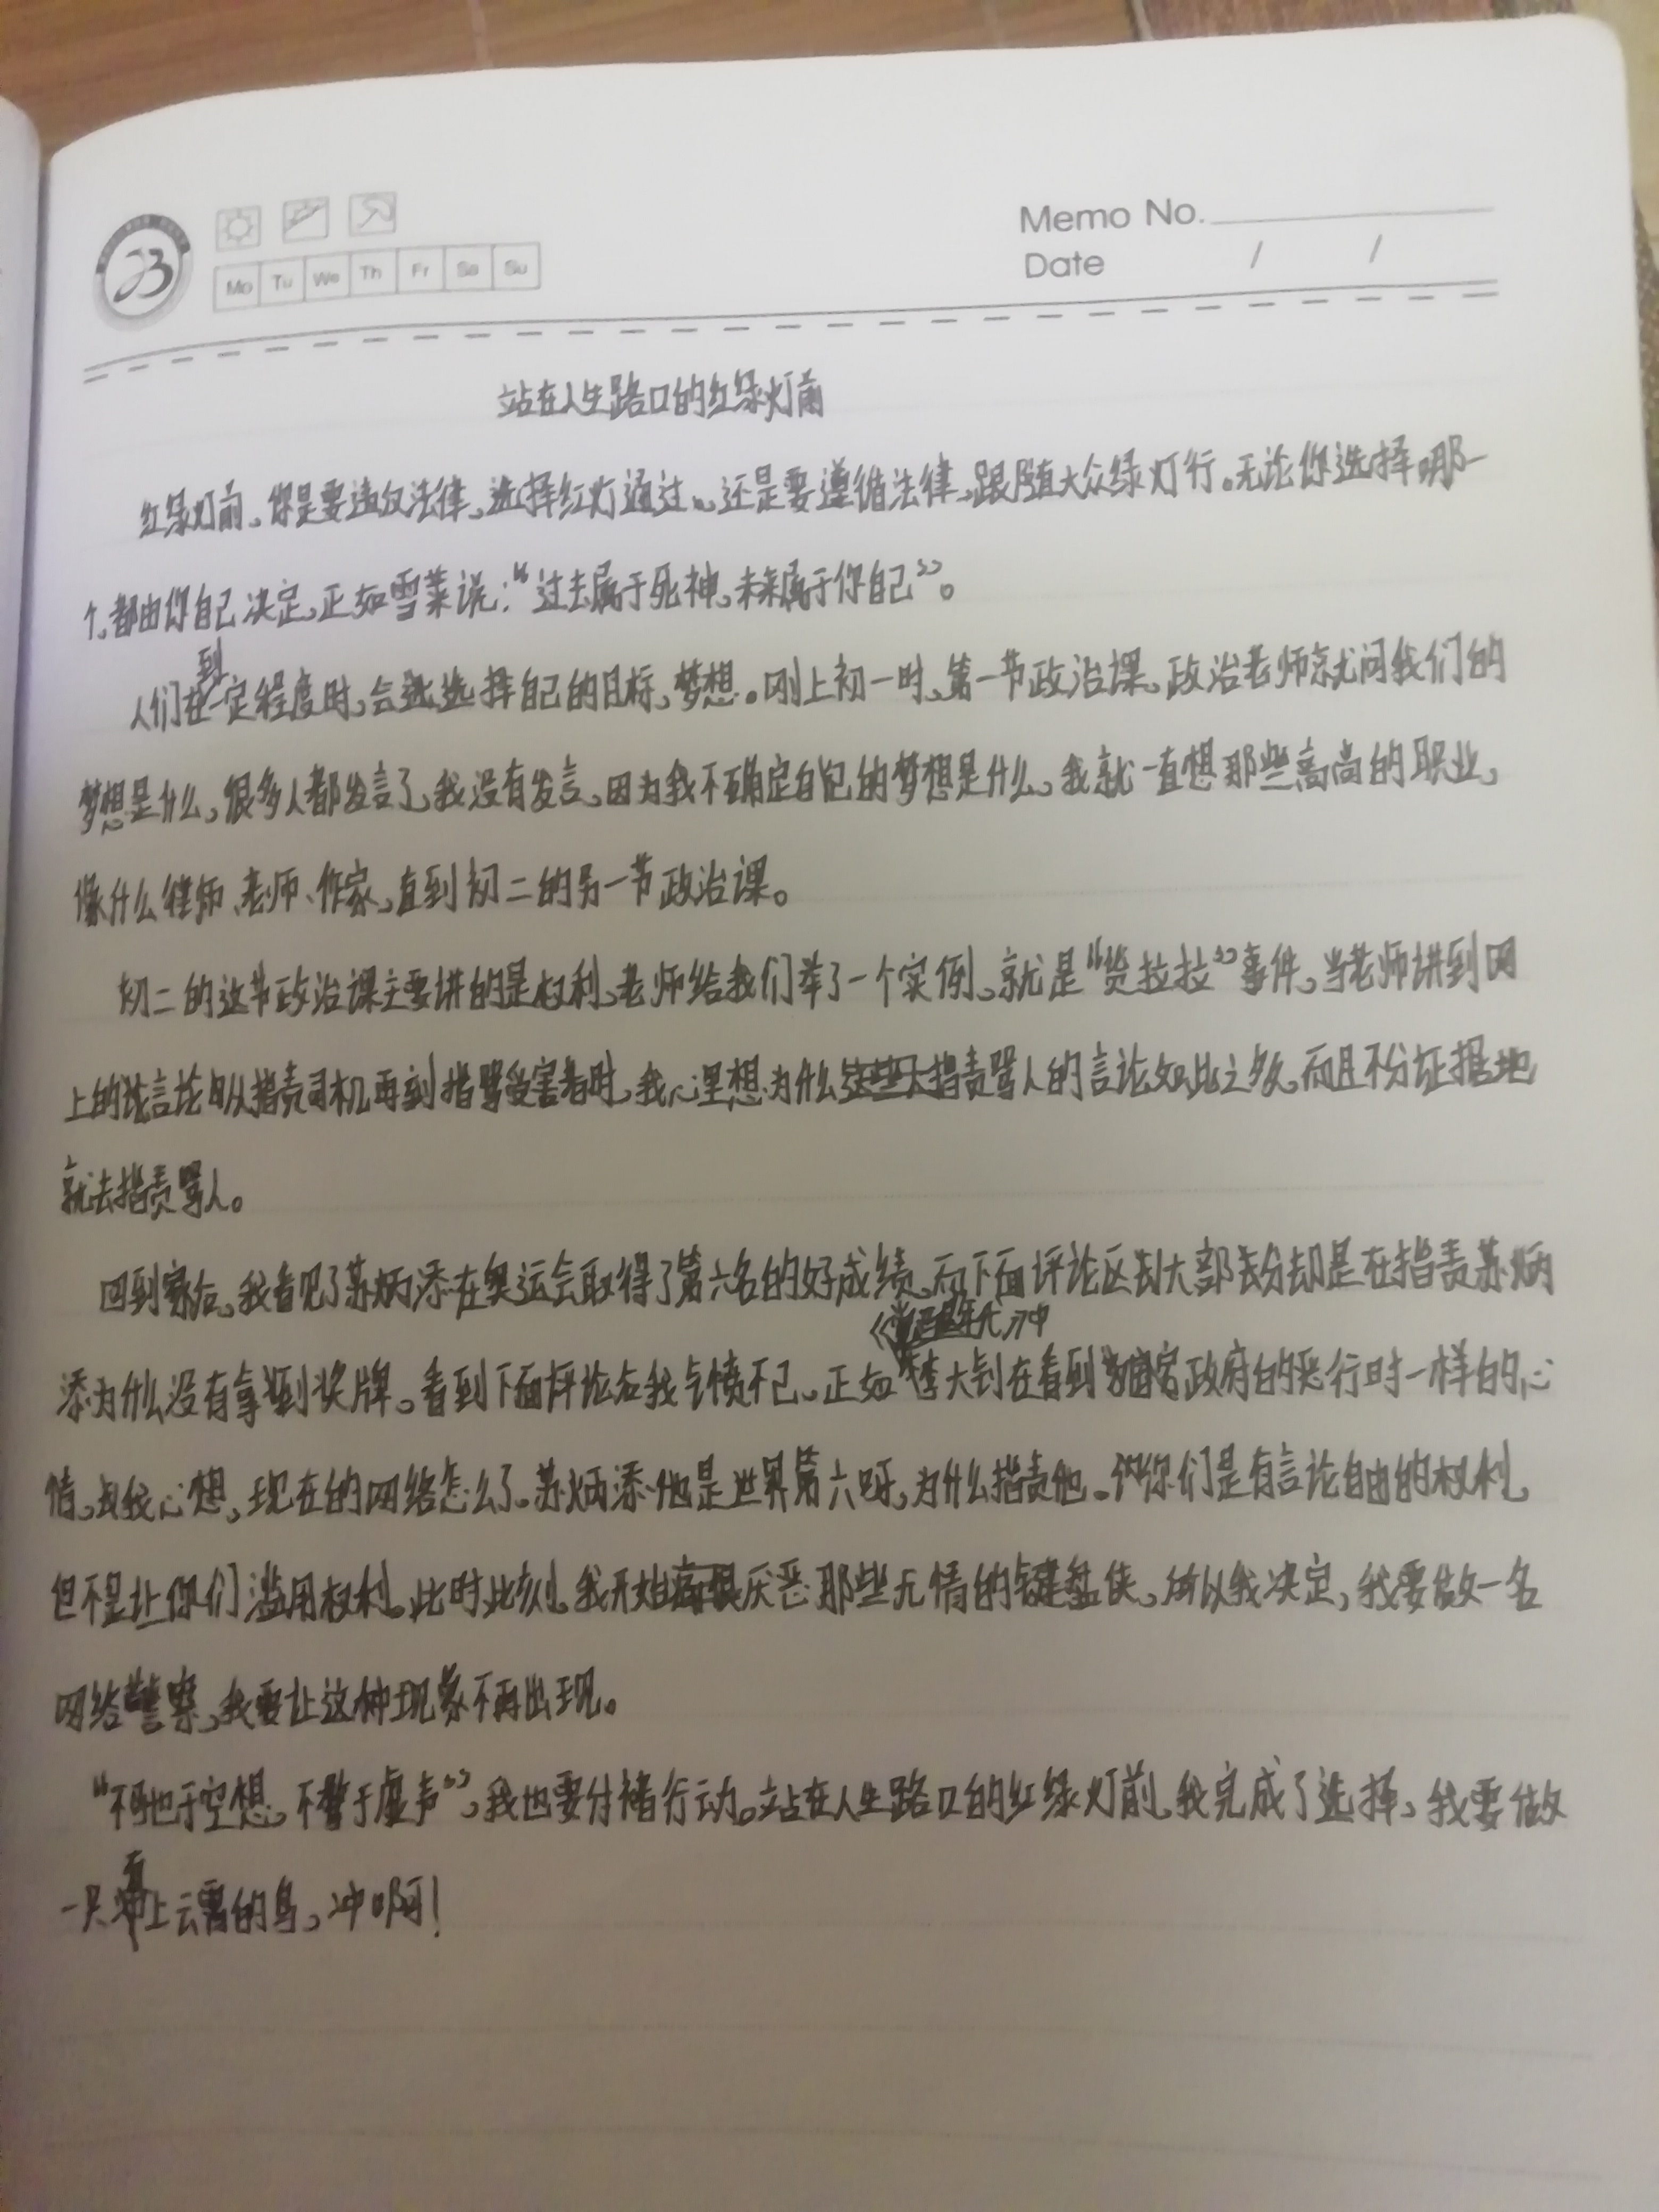 23
Mo Tu We Th Fr Sa Su
Memo No.
Date / /
站在人生路口的红绿灯前
红绿灯前,你是要违反法律,选择红灯通过,还是要遵循法律,跟随大众绿灯行。无论你选择哪一
个,都由你自己决定,正如雪莱说:“过去属于死神,未来属于你自己”。
到
人们在一定程度时,会选择自己的目标,梦想。刚上初一时,第一节政治课,政治老师就问我们的
梦想是什么,很多人都发言了,我没有发言,因为我不确定自己的梦想是什么,我就一直想那些高尚的职业,
像什么律师、老师、作家,直到初二的另一节政治课。
初二的这节政治课主要讲的是权利,老师给我们举了一个实例,就是“货拉拉”事件,当老师讲到网
上的言论从指责司机再到指骂受害者时,我心里想为什么指责骂人的言论如此之多,而且不分证据地
就去指责骂人。
回到家后,我看见了苏炳添在奥运会取得了第六名的好成绩,而下面评论区大部分却是在指责苏炳
《觉醒年代》中
添为什么没有拿到奖牌。看到下面评论后我气愤不已,正如李大钊在看到政府的恶行时一样的心
情,我心想,现在的网络怎么了。苏炳添他是世界第六呀,为什么指责他。你们是有言论自由的权利,
但不是让你们滥用权利。此时此刻,我开始厌恶那些无情的键盘侠,所以我决定,我要做一名
网络警察,我要让这种现象不再出现。
“不驰于空想,不骛于虚声”,我也要付诸行动。站在人生路口的红绿灯前,我完成了选择,我要做
一只直上云霄的鸟,冲啊!